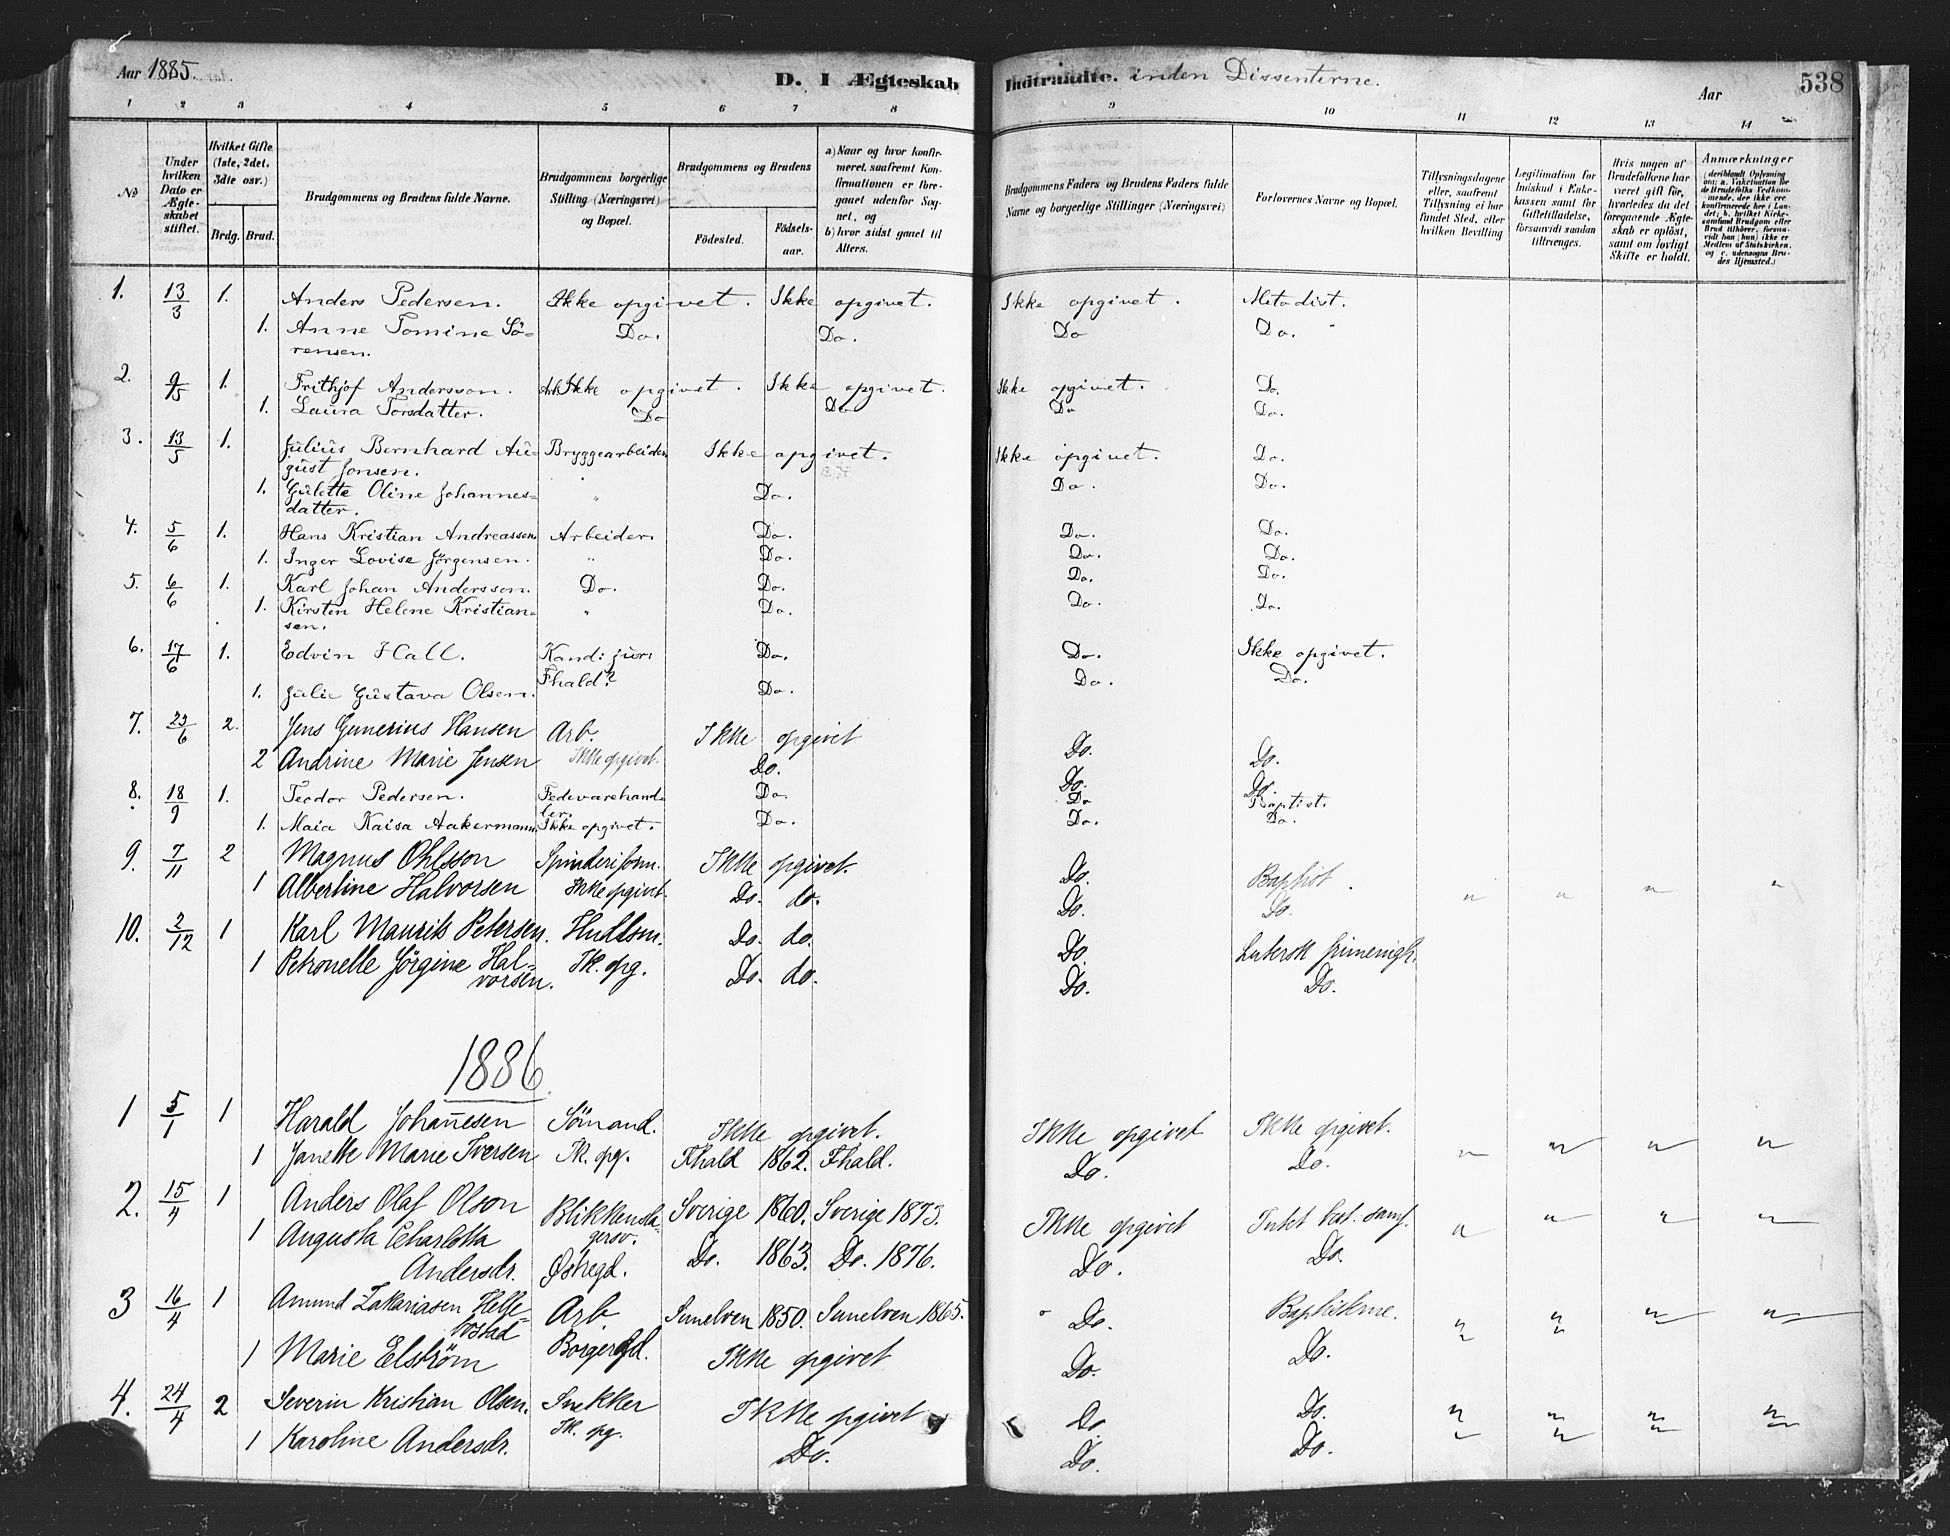 Aar 1885.
D. I Ægteskab Indtraadte. inden Dissenterne.
Aar
538
1 2 3 4 5 6 7 8 9 10 11 12 13 14
No
Under hvilken Dato er Ægteskabet stiftet.
Hvilket Gifte (1ste, 2det, 3die osv.)
Brdg. Brud.
Brudgommens og Brudens fulde Navne.
Brudgommens borgerlige Stilling (Næringsvei) og Bopæl.
Brudgommens og Brudens
Fødested.
Fødsels-aar.
a) Naar og hvor konfirmeret, saafremt Konfirmationen er foregaaet udenfor Sognet, og
b) hvor sidst gaaet til Alters.
Brudgommens Faders og Brudens Faders fulde Navne og borgerlige Stillinger (Næringsvei)
Forlovernes Navne og Bopæl.
Tillysningsdagene eller, saafremt Tillysning ei har fundet Sted, efter hvilken Bevilling
Legitimation for Indskud i Enkekassen samt for Giftetilladelse, forsaavidt saadan tiltrænges.
Hvis nogen af Brudefolkene har været gift før, hvorledes da det foregaaende Ægteskab er opløst, samt om lovligt Skifte er holdt.
Anmærkninger (deriblandt Oplysning om: a. Vakcination for de Brudefolks Vedkommende, der ikke ere konfirmerede her i Landet; b. hvilket Kirkesamfund Brudgom eller Brud tilhører, forsaavidt han (hun) ikke er Medlem af Statskirken, og c. udensogns Brudes Hjemsted.)
1. 13/3 1. Anders Pedersen. Ikke opgivet. Ikke opgivet. Ikke opgivet. Metodist.
1. Anne Tomine Sö- Do. Do. Do Do.
rensen.
2. 9/5 1. Frithjof Andersson. Ikke opgivet. Ikke opgivet. Ikke opgivet. Do.
1. Laura Torsdatter. Do Do Do Do.
3. 13/5 1. Julius Bernhard Au- Bryggearbeider Ikke opgivet. Ikke opgivet. Do.
gust Jensen.
1. Gulette Oline Johannes- " Do. Do. Do.
datter.
4. 5/6 1. Hans Kristian Andreassen Arbeider. Do. Do. Do.
1. Inger Lovise Jørgensen. " Do. Do. Do.
5. 6/6 1. Karl Johan Andersson. Do. Do. Do. Do.
1. Kirsten Helene Kristian- " Do. Do. Do.
sen.
6. 17/6 1. Edvin Hall. Kand: jur: Do. Do. Ikke opgivet.
Fhald?
1. Julie Gustava Olsen. Do. Do. Do.
7. 23/6 2. Jens Gunerius Hansen Arb. Ikke opgivet Do. Do.
2 Andrine Marie Jensen Ikke opgivet. Do. Do. Do.
8. 18/9 1. Teodor Pedersen. Fedevarehand- Do. Do Baptist.
ler.
1. Maia Kaisa Aakermann Ikke opgivet. Do. Do. Do.
9. 7/11 2 Magnus Ohlsson Spinderiform. Ikke opgivet. Do. Baptist.
1 Albertine Halvorsen Ikke opgivet. Do. do. Do. Do. " " " "
10. 2/12 1 Karl Maurits Petersen. Do. do. Do. Lutersk frimenigh.
1 Petronelle Jörgine Hal- Ik. opg. Do. do. Do. Do.
vorsen.
1886.
1 5/1 1 Harald Johannesen Sömand. Ikke opgivet. Ikke opgivet Ikke opgivet.
1 Janette Marie Iversen Ik. opg. Fhald 1862. Fhald. Do. Do. " " " "
2. 15/4 1 Anders Olaf Olson Blikkensla- Sverige 1860. Sverige 1873. Ikke opgivet Intet best. samf. " " " "
gersv.
1 Augusta Charlotta Do. 1863. Do. 1876. Do. Do.
Andersdr. Østregd.
3 16/4 1 Amund Zakariasen Helle- Arb. Sunelven 1850. Sunelven 1865. Do. Baptisterne. " " " "
bostad
1 Marie Elström Borgergd. Ikke opgivet Do. Do.
4. 24/4 2 Severin Kristian Olsen. Snekker Ikke opgivet Do. Do. " " " "
1 Karoline Andersdr. Ik. opg. Do. Do. Do.